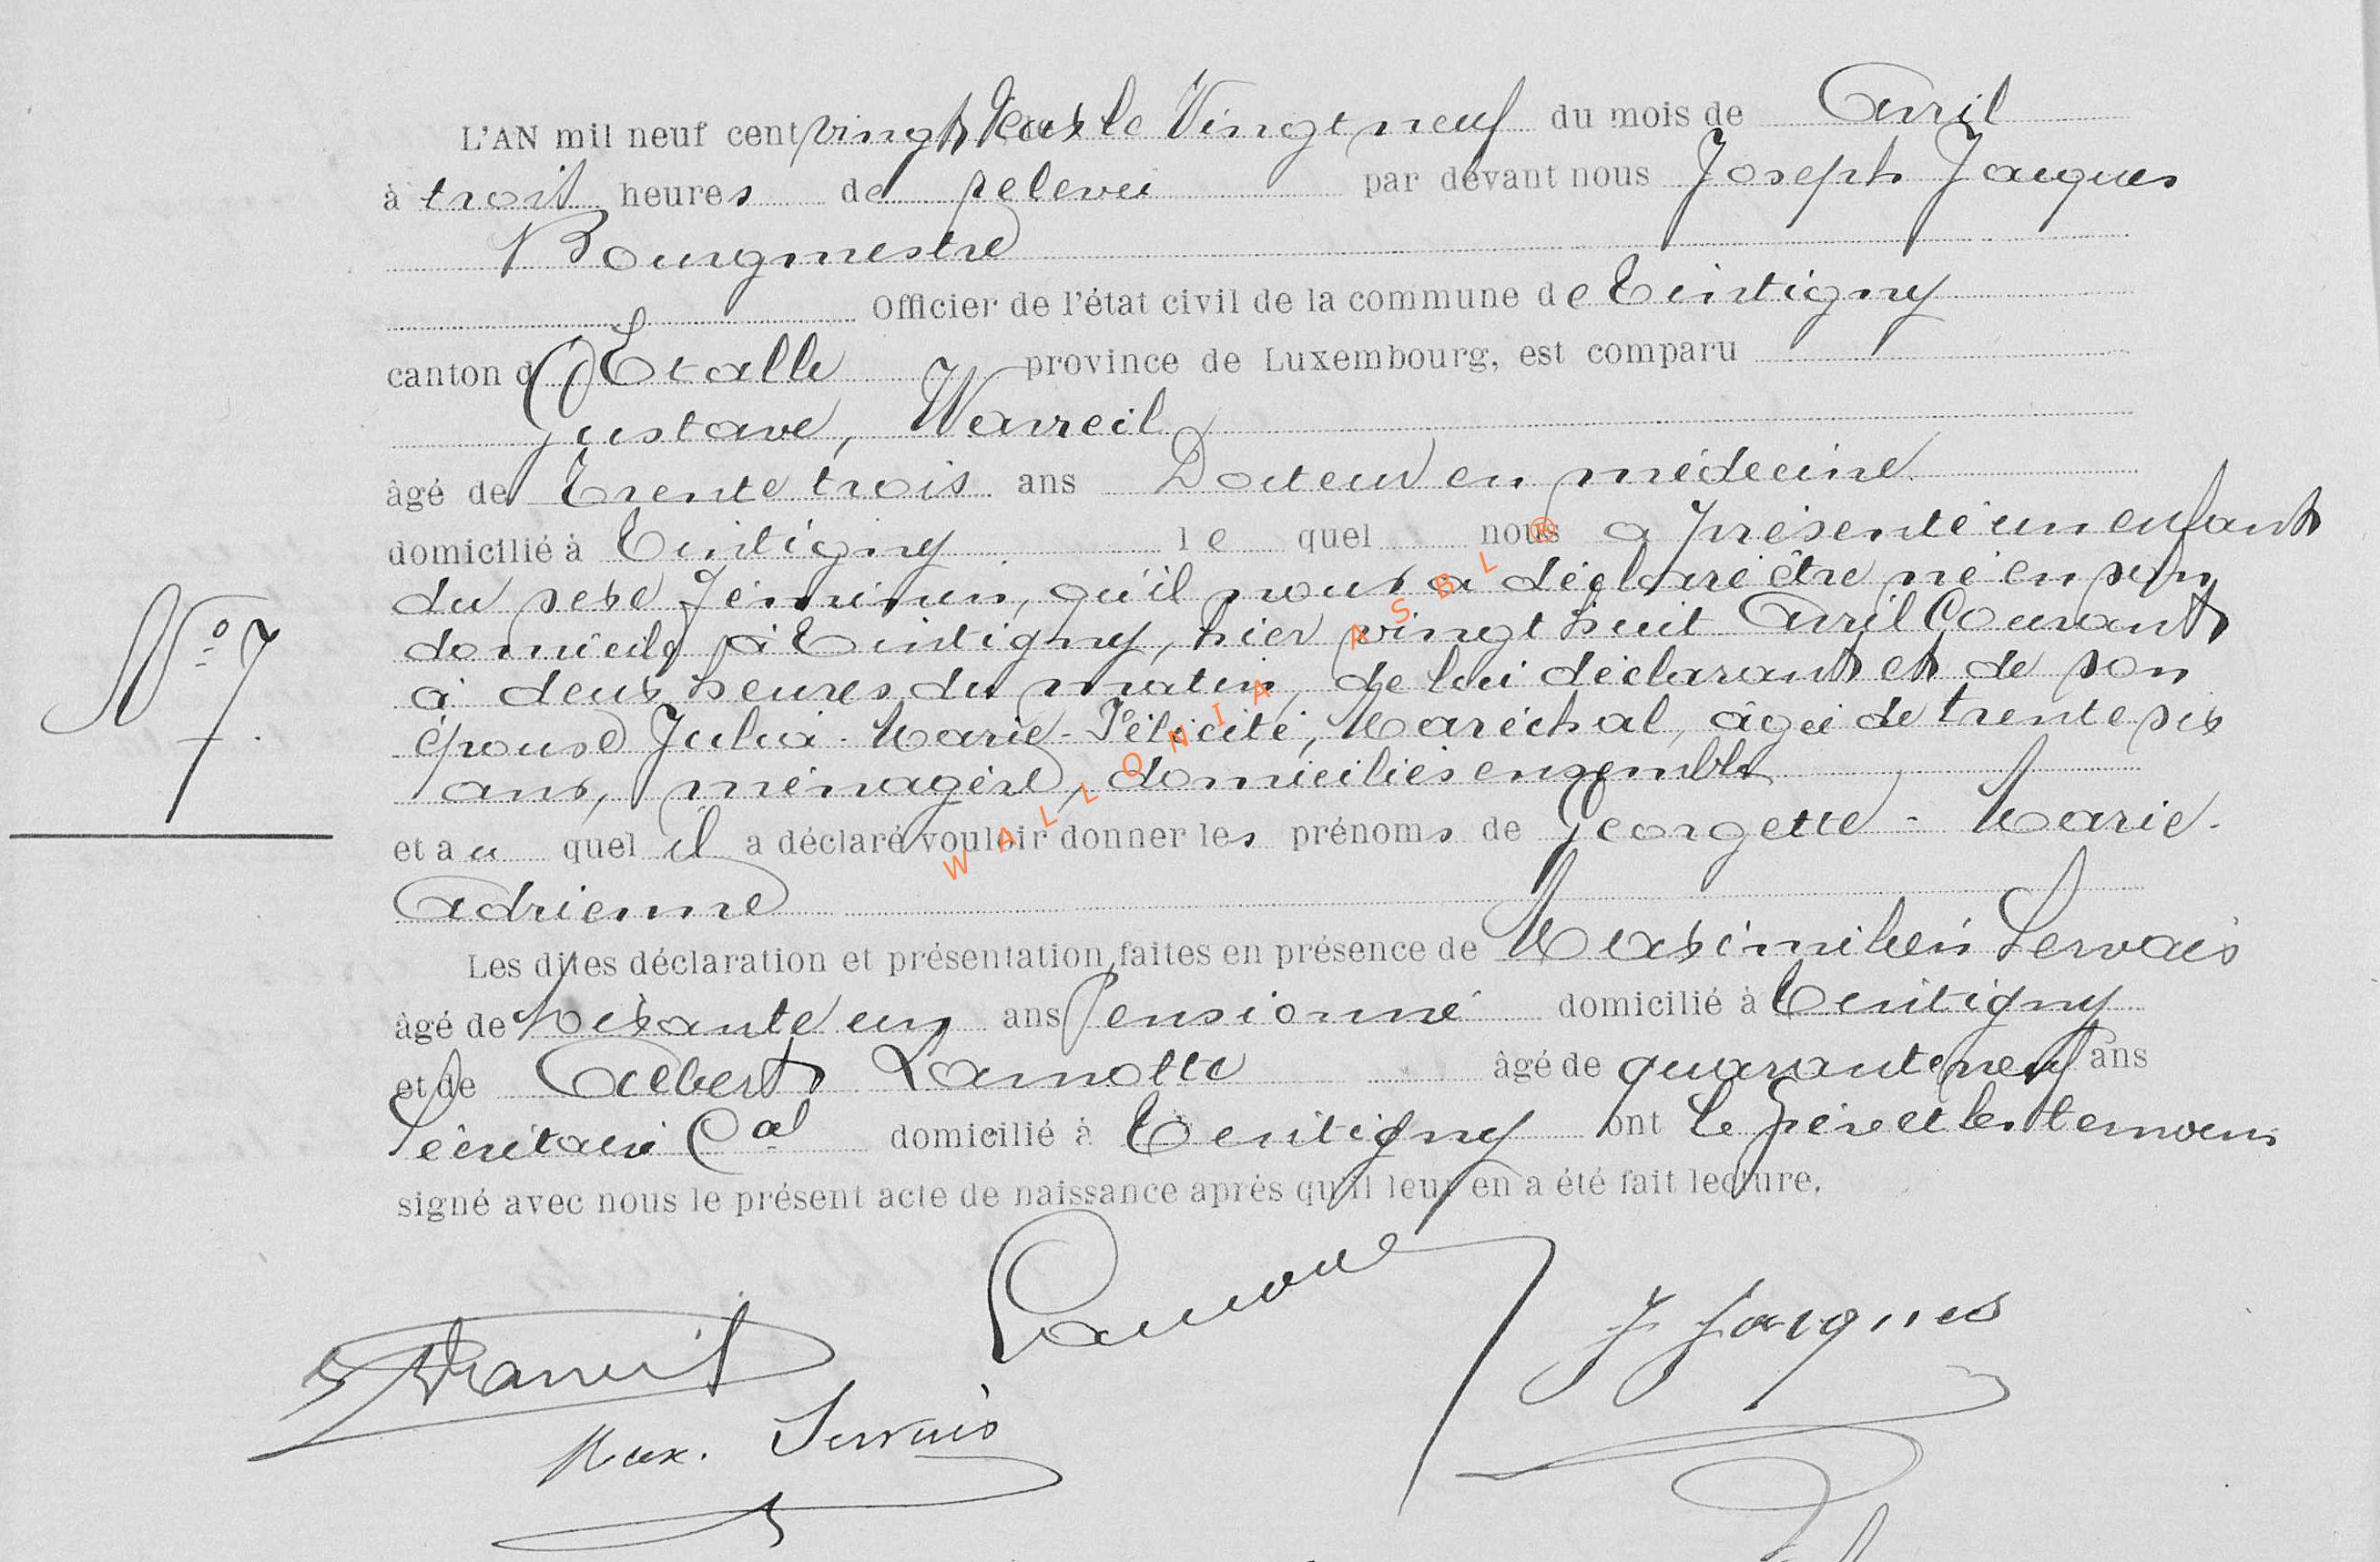 L'AN mil neuf cent vingt deux le Vingt neuf du mois de Avril
à trois heures de relevée par devant nous Joseph Jacques
Bourgmestre
Officier de l'état civil de la commune de Tintigny
canton d'Etalle province de Luxembourg, est comparu
Gustave, Warreit
âgé de Trente trois ans Docteur en médecine
domicilié à Tintigny le quel nous a présenté un enfant
du sexe féminin, qu'il nous a déclaré être né en son
domicile à Tintigny, hier vingt huit Avril Courant
à deux heures du matin, de lui déclarant et de son
épouse Julia-Marie-Félicité, Maréchal, âgée de trente six
ans, ménagère, domiciliés ensemble
N° 7.
et au quel il a déclaré vouloir donner les prénoms de Georgette - Marie-
Adrienne
Les dites déclaration et présentation faites en présence de Maximilien Servais
âgé de soixante un ans Pensionné domicilié à Tintigny
et de Albert Lamotte âgé de quarante neuf ans
Secrétaire Cal domicilié à Tintigny ont le père et les témoins
signé avec nous le présent acte de naissance après qu'il leur en a été fait lecture.
J Jacques
Max. Servais
WALLONIA ASBL ®